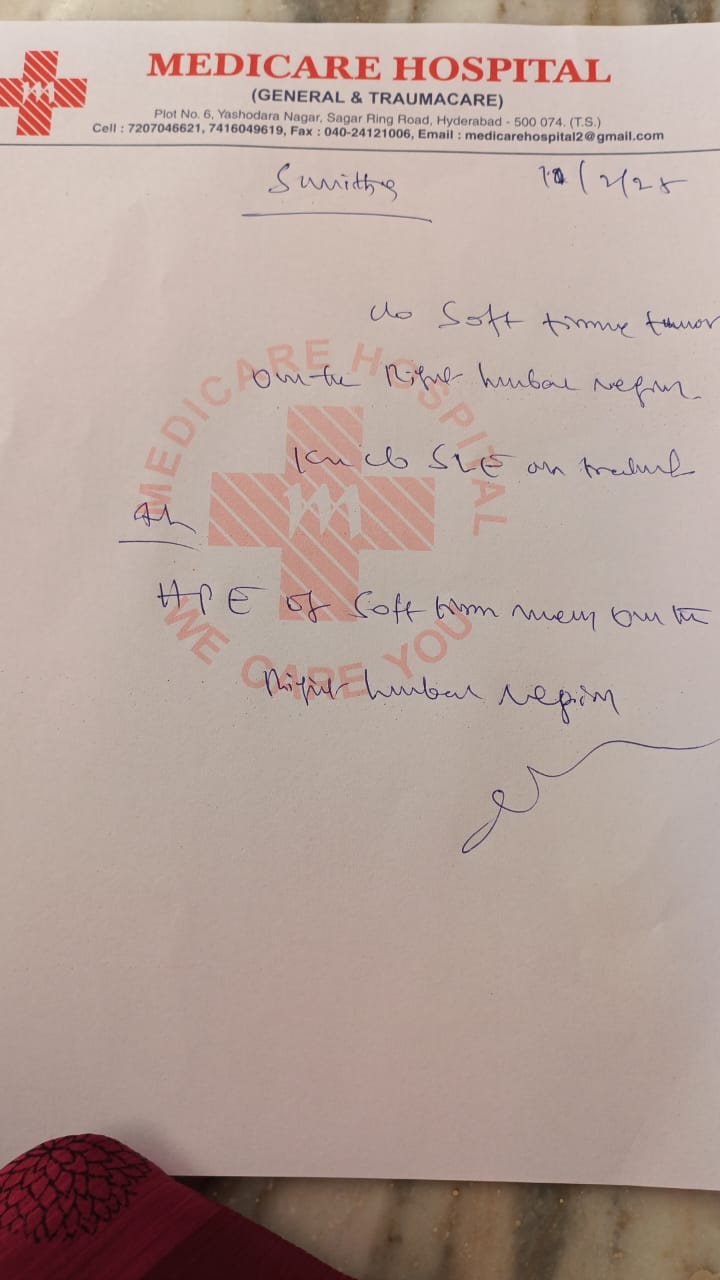 MEDICARE HOSPITAL
(GENERAL & TRAUMACARE)
Plot No. 6, Yashodara Nagar, Sagar Ring Road, Hyderabad - 500 074. (T.S.)
Cell : 7207046621, 7416049619, Fax : 040-24121006, Email : medicarehospital2@gmail.com
Sunitha /2/25
c/o Soft tissue tumor
over the Right lumbar region.
K/c/o SLE on treatment
MEDICARE HOSPITAL
WE CARE YOU
HPE of Soft tissue mass over the
Right lumbar region